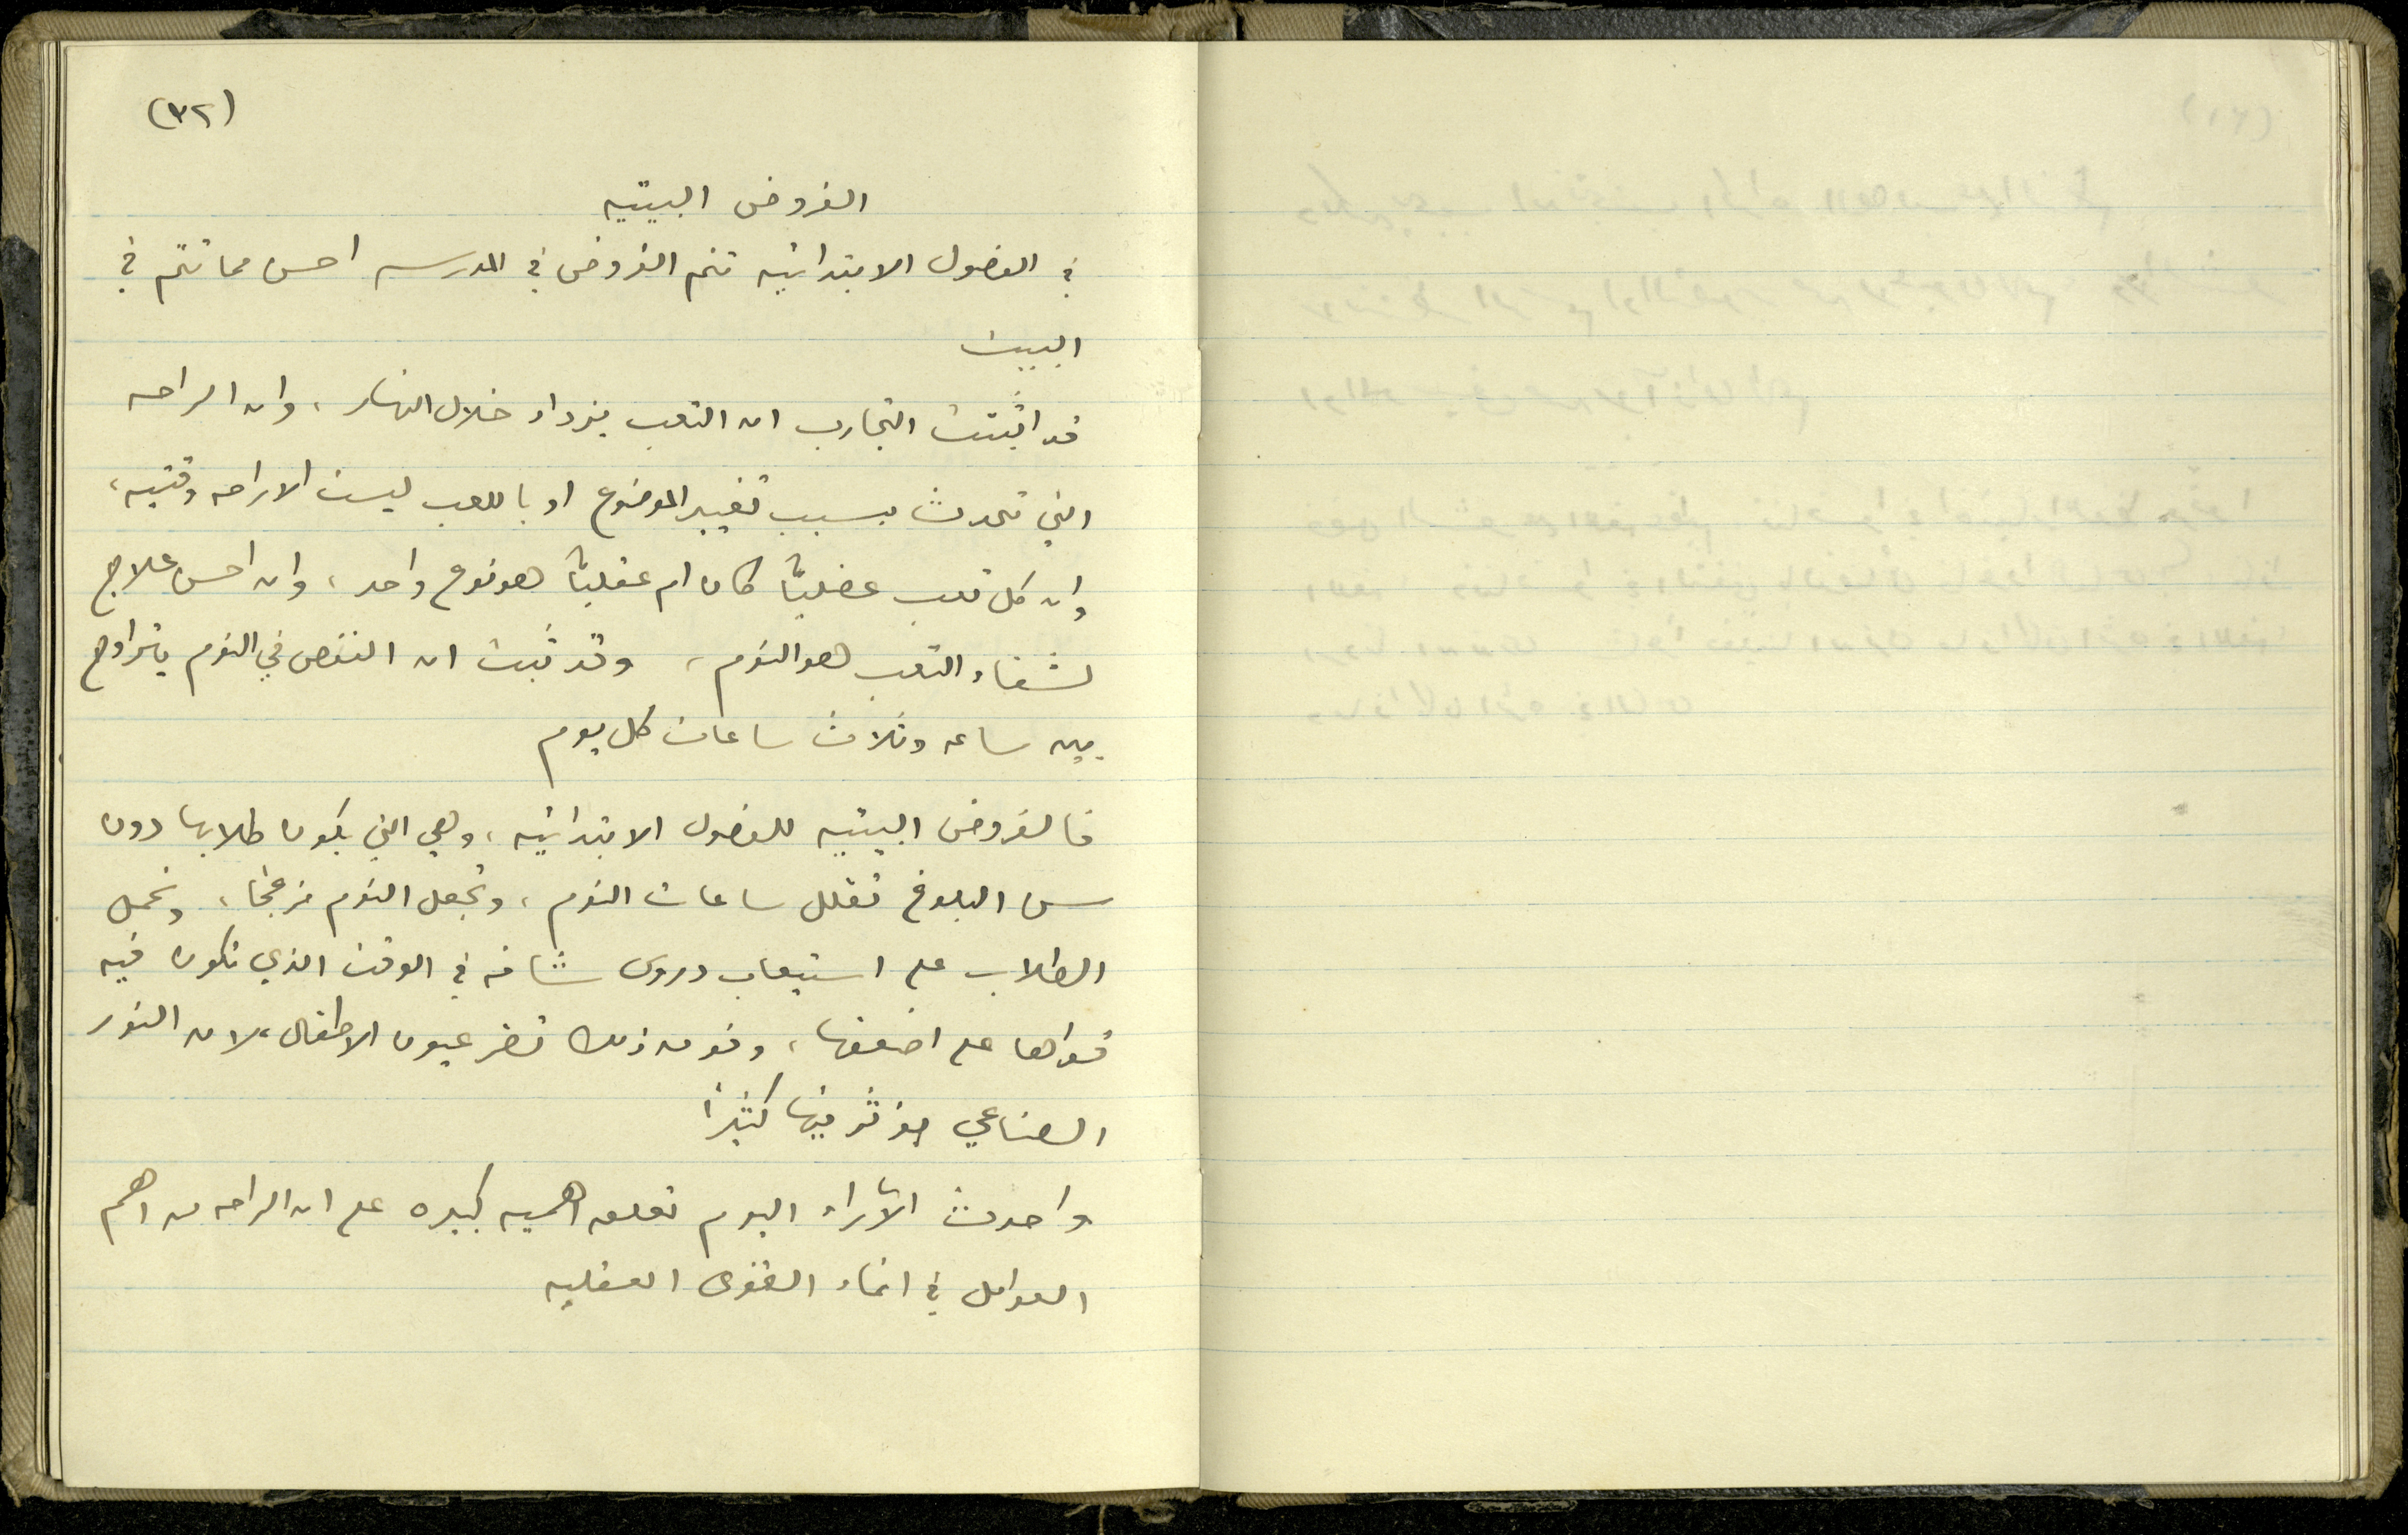 (٣٢)
الفروض البيتيه
في الفصول الابتدائيه تتم الفروض في المدرسه احسن مما تتم في
البيت
قد اثبتت التجارب ان التعب يزداد خلال النهار، وان الراحه
التي تحدث بسبب تغيير الموضوع او باللعب ليست الا راحه وقتيه،
وان كل تعب عضليًا كان ام عقليًا هو نوع واحد، وان احسن علاج
لشفاء التعب هو النوم، وقد ثبت ان النقص في النوم يتراوح
بين ساعه وثلاث ساعات كل يوم
فالفروض البيتيه للفصول الابتدائيه، وهي التي يكون طلابها دون
سن البلوغ تقلل ساعات النوم، وتجعل النوم مزعجًا، وتحمل
الطلاب على استيعاب دروس شاقه في الوقت الذي تكون فيه
قواها على اضعفها، وفوق ذلك تضر عيون الاطفال، لان النور
الصناعي يؤثر فيها كثيرًا
واحدث الآراء اليوم تعلق اهميه كبيره على ان الراحه من اهم
العوامل في انماء القوى العقليه